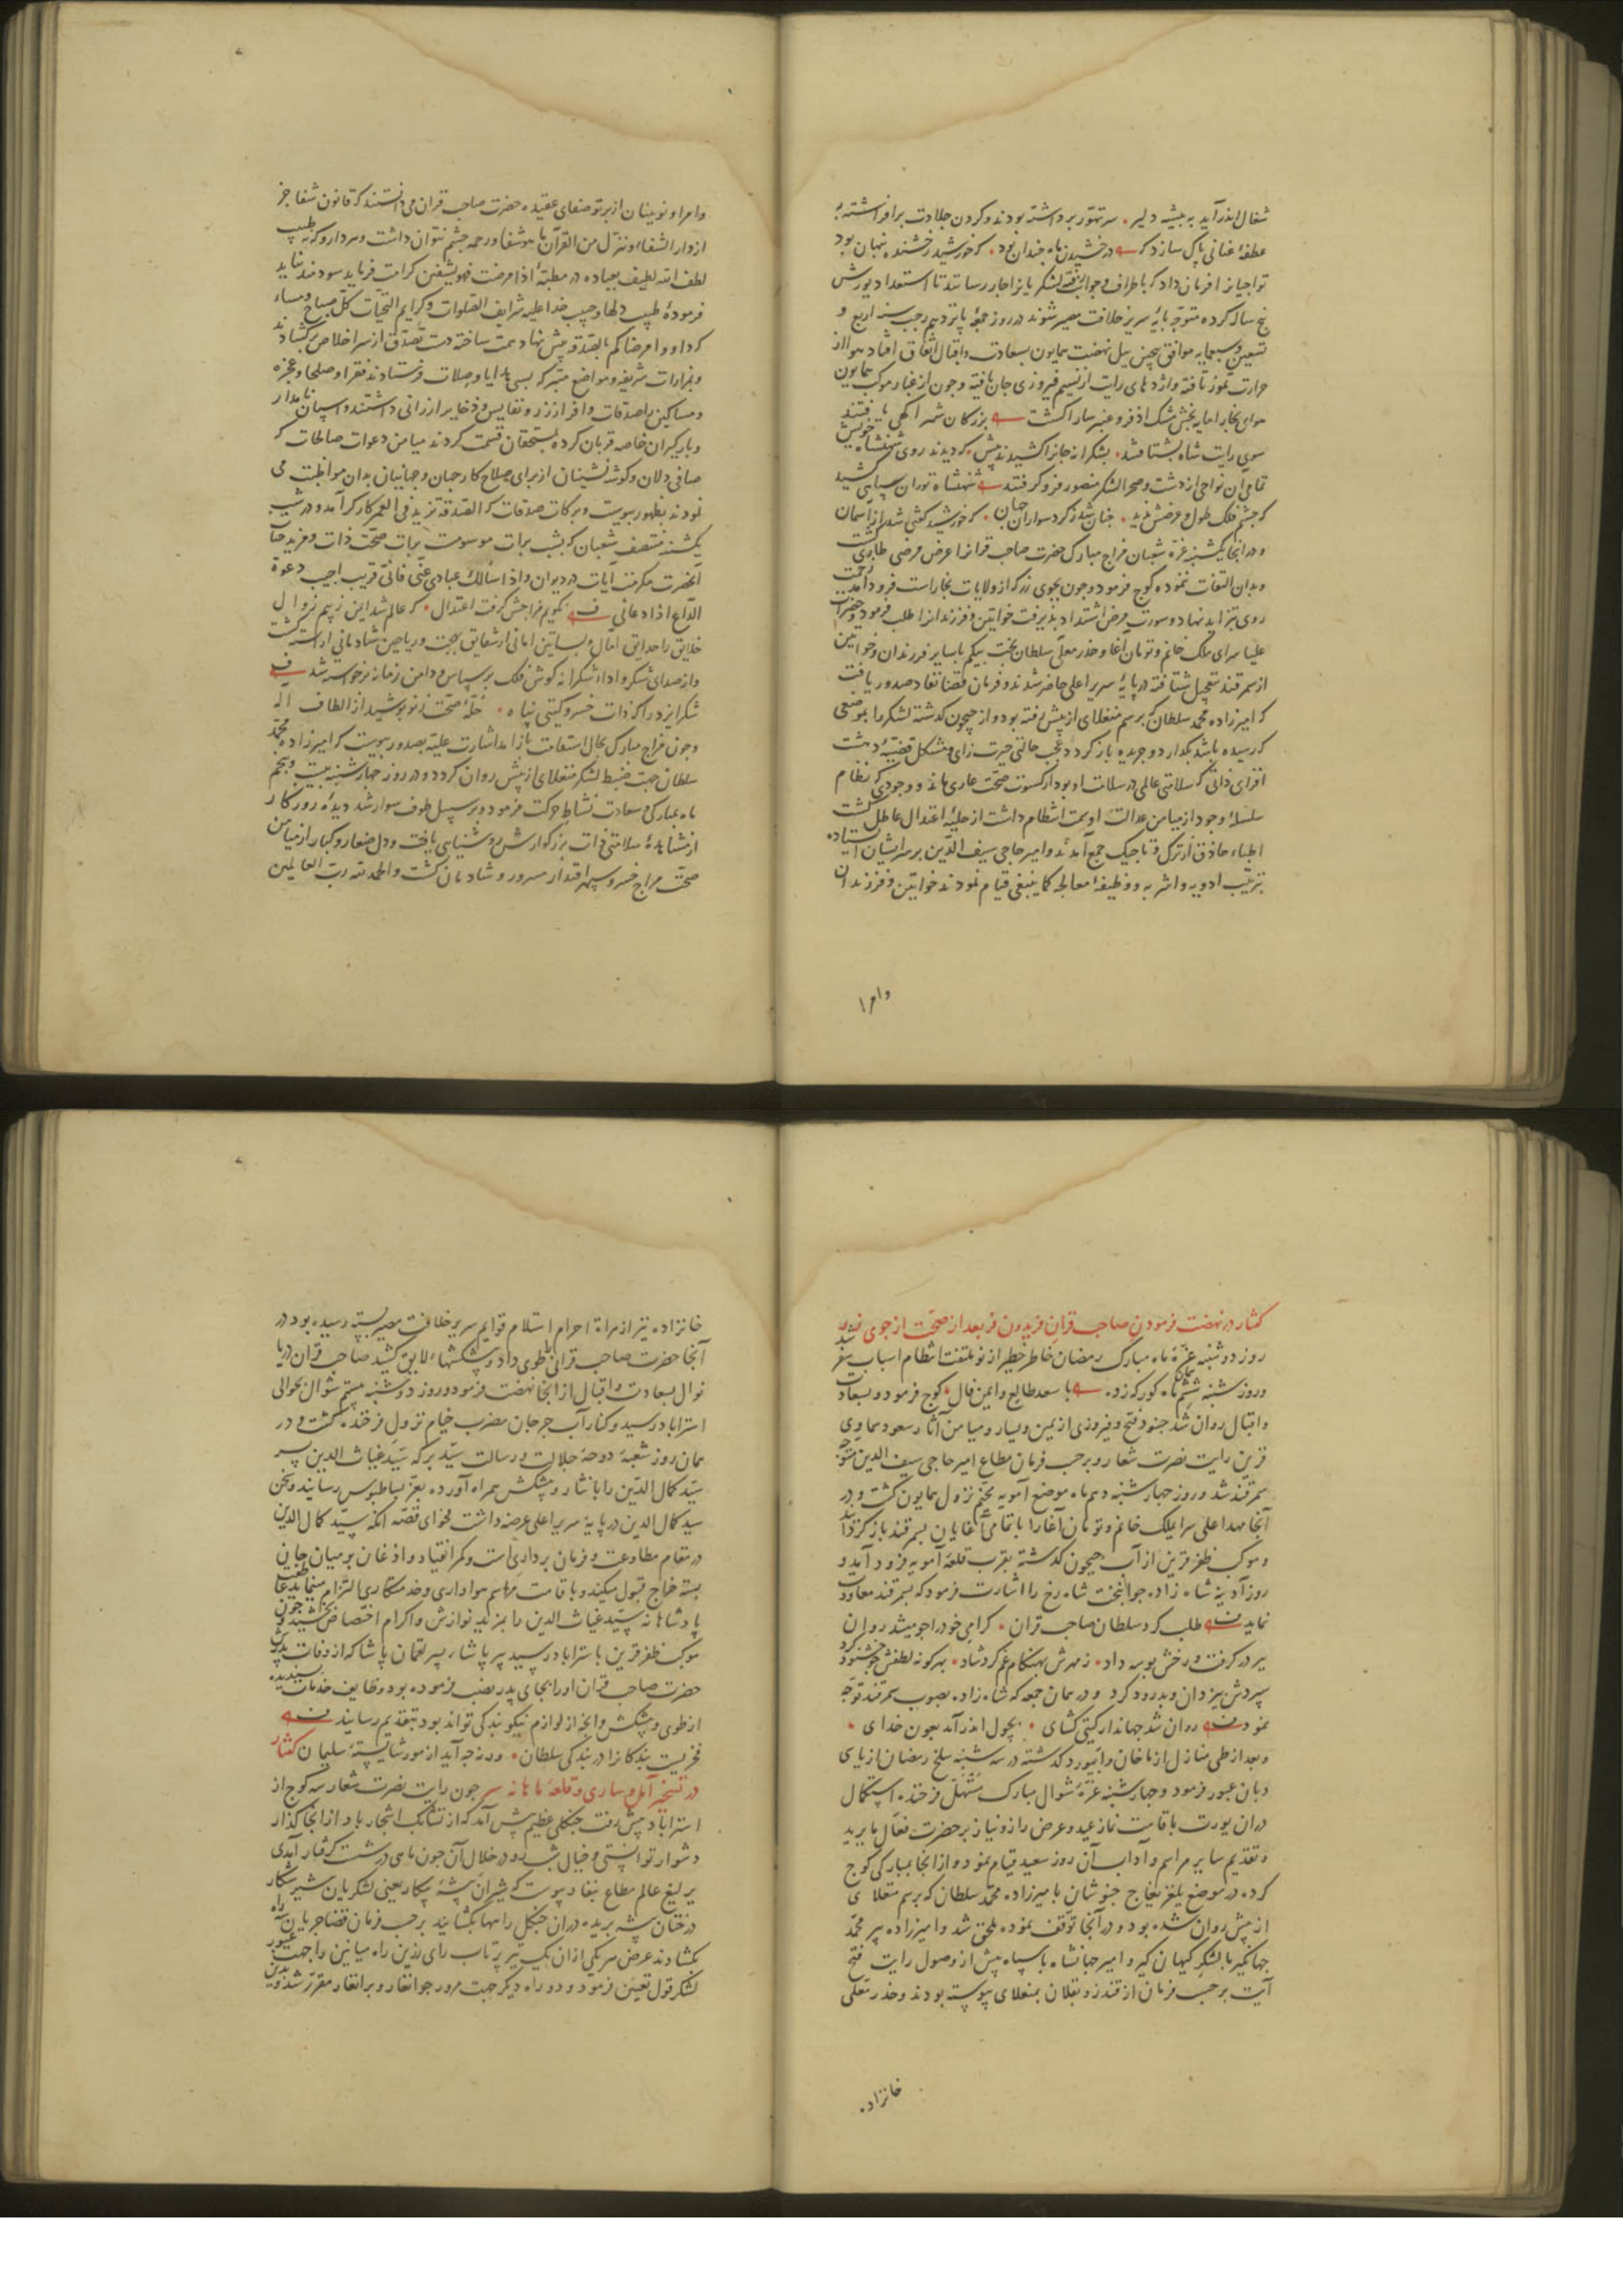 شغال اندر آید به بیشه دلیر • سر تهور برداشته بودند و کردن جلادت برافراشته
عطفهٔ عنانی پاک سازد که درخشیدن ماه چندان بود • که خورشید رخشنده پنهان بود
تواجیانرا فرمان داد که باطراف و جوانب رفته لشکریانرا جار رسانند تا استعداد یورش
پنج ساله کرده متوجه پایهٔ سریر خلافت مصیر شوند در روز جمعهٔ پانزدهم رجب سنه اربع و
تسعین و سبعمایه موافق پیچین ییل نهضت همایون بسعادت و اقبال اتفاق افتاد هوا از
حرارت تموز تافته و اژدهای رایت از نسیم فیروزی جان یافته و چون از غبار موکب همایون
هوای بخارا مایه بخش مشک اذفر و عنبر سارا کشت بزرکان شهر آکهی یافتند
سوی رایت شاه بشتافتند • بشکرانه جانرا کشیدند پیش • که دیدند روی شهنشاه خویش
تمامی آن نواحی از دشت و صحرا لشکر منصور فرو کرفتند شهنشاه توران سپاهی کشید
که چشم فلک طول و عرضش ندید • چنان شد ز کرد سواران جهان • که خورشید کفتی شد از آسمان
و در انجا یکشنبه غرهٔ شعبان مزاج مبارک حضرت صاحب قرانرا عرض مرضی طاری کشت
و بدان التفات ننموده کوچ فرمود و چون بجوی زر که از ولایات بخاراست فرود آمد زحمت
روی بتزاید نهاد و سورت مرض اشتداد پذیرفت خواتین و فرزندانرا طلب فرمود و حضرات
علیا سرای ملک خانم و تومان آغا و خدر معلی سلطان بخت بیکم با سایر فرزندان و خواتین
از سمرقند بتعجیل شتافته در پایهٔ سریر اعلی حاضر شدند و فرمان قضا نفاد صدور یافت
که امیرزاده محمد سلطان که برسم منغلای از پیش رفته بود و از جیحون کذشته لشکر را بموضعی
که رسیده باشد بکذارد و جریده باز کردد عجب حالتی حیرت زای و مشکل قضیهٔ دهشت
افزای ذاتی که سلامتی عالمی در سلامت او بود از کسوت صحت عاری ماند و وجودی که نظام
سلسلهٔ وجود از میامن عدالت او سمت انتظام داشت از حلیهٔ اعتدال عاطل کشت
اطباء حاذق از ترک و تاجیک جمع آمدند و امیر حاجی سیف الدین بر سر ایشان ایستاده
بترتیب ادویه و اشربه و وظیفهٔ معالجه کما ینبغی قیام نمودند خواتین و فرزندان
وامرا
وامرا و نویینان از پرتو صفای عقیده حضرت صاحب قران می دانستند که قانون شفا جز
از دار الشفاء و ننزل من القرآن ما هو شفاء و رحمه چشم نتوان داشت و هر دارو که نه طبیب
لطف الله لطیف بعباده در مطبهٔ اذا مرضت فهو یشفین کرامت فرماید سودمند نیاید
فرمودهٔ طبیب دلها و حبیب خدا علیه شرایف الصلوات و کرایم التحیات کل صباح و مساء
که داووا مرضاکم بالصدقه پیش نهاد همت ساخته دست تصدق از سر اخلاص برکشادند
و بمزارات شریفه و مواضع متبرکه بسی هدایا و صلات فرستادند فقرا و صلحا و عجزه
و مساکین را صدقات وافر از زر و نفایس و ذخایر ارزانی داشتند و اسپان نامدار
و بارکیران خاصه قربان کرده بمستحقان قسمت کردند میامن دعوات صالحات که
صافی دلان و کوشه نشینان از برای صلاح کار جهان و جهانیان بدان مواظبت می
نمودند بظهور پیوست و برکات صدقات که الصدقة تزید فی العمر کارکر آمد و در شب
یکشنبه منتصف شعبان که بشب برات موسومست برات صحت ذات و مزید حیات
آنحضرت مکرمت آیات در دیوان و اذا سألک عبادی عنی فانی قریب اجیب دعوة
الداع اذا دعانی نکویم مزاجش کرفت اعتدال • که عالم شد ایمن ز بیم زوال
خلایق را حدایق آمال و بساتین امانی از شقایق بهجت و ریاحین شادمانی آراسته کشت
و از صدای شکر و اداء شکرانه کوش فلک پر سپاس و دامن زمانه پر خواسته شد
شکر ایزد را که ذات خسرو کیتی پناه • حلهٔ صحت ز نو پوشید از الطاف اله
و چون مزاج مبارک بحال استقامت باز آمد اشارت علیه بصدور پیوست که امیرزاده محمد
سلطان جهت ضبط لشکر منغلای از پیش روان کردد و در روز چهارشنبه بیست و پنجم
ماه بمبارکی و سعادت نشاط حرکت فرمود و بر سبیل طوف سوار شد دیدهٔ روزکار
از مشاهدهٔ سلامتی ذات بزرکوارش روشنایی یافت و دل صغار و کبار از میامن
صحت مزاج خسرو سپهر اقتدار مسرور و شادمان کشت و الحمد لله رب العالمین
کفتار در نهضت فرمودن صاحب قران فریدون فر بعد از صحت از جوی زر
روز دوشنبه غرهٔ ماه مبارک رمضان خاطر خطیر از نو ملتفت انتظام اسباب سفر شد
و روز شنبه ششم ماه کورکه زده با سعد طالع و ایمن فال • کوچ فرمود و بسعادت
و اقبال روان شد جنود فتح و فیروزی از یمین و یسار و میامن آثار سعود سماوی
قرین رایت نصرت شعار و برحسب فرمان مطاع امیر حاجی سیف الدین متوجه
سمرقند شد و روز چهارشنبه دهم ماه موضع آمویه مخیم نزول همایون کشت و در
آنجا مهد اعلی سرا یملک خانم و تومان آغا را با تمامی آغایان بسمرقند باز کردانید
و موکب ظفر قرین از آب جیحون کذشته بقرب قلعه آمویه فرود آمد و
روز آدینه شاه زاده جوانبخت شاه رخ را اشارت فرمود که بسمرقند معاودت
نماید طلب کرد سلطان صاحب قران • کرامی خود را چو میشد روان
ببر در کرفت و رخش بوسه داد • ز مهرش بهنکام غم کرد شاد • بهر کونه لطفش چو خشنود کرد
سپردش بیزدان و بدرود کرد و در همان جمعه که شاه زاده بصوب سمرقند توجه
نمود روان شد جهاندار کیتی کشای • بچول اندر آمد بعون خدای •
و بعد از طی منازل از ماخان و ابیورد کذشته در سه شنبه سلخ رمضان از یاسی
دبان عبور فرمود و چهارشنبه غرهٔ شوال مبارک مستهل فرخنده استکمال
در ان یورت باقامت نماز عید و عرض راز و نیاز بر حضرت فعال ما یرید
و تقدیم سایر مراسم و آداب آن روز سعید قیام نمود و از انجا بمبارکی کوچ
کرده در موضع یلغز یغاج خبوشان بامیرزاده محمد سلطان که برسم منغلای
از پیش روان شده بود و در آنجا توقف نموده ملحق شد و امیرزاده پیر محمد
جهانکیر با لشکر کیهان کیر و امیر جهانشاه با سپاه پیش از وصول رایت فتح
آیت برحسب فرمان از قندز و بقلان بمنغلای پیوسته بودند و خدر معلی
خانزاده
خانزاده نیز از هراة احرام استلام قوایم سریر خلافت مصیر بسته رسیده بود در
آنجا حضرت صاحب قرانی را طوی داد و پیشکشهاء لایق کشید صاحب قران دریا
نوال بسعادت و اقبال از انجا نهضت فرمود و روز دوشنبه بیستم شوال بحوالی
استراباد رسید و کنار آب جرجان مضرب خیام نزول فرخنده کشت و در
همان روز شعبهٔ دوحهٔ جلالت و رسالت سید برکه سید غیاث الدین پسر
سید کمال الدین را با نثار و پیشکش همراه آورده بعز بساطبوس رسانید و سخن
سید کمال الدین در پایهٔ سریر اعلی عرضه داشت فحوای قضه انکه سید کمال الدین
در مقام مطاوعت و فرمان برداریست و کمر انقیاد و اذعان بر میان جان
بسته خراج قبول میکند و باقامت مراسم هواداری و خدمتکاری التزام مینماید عاطفت
پادشاهانه سید غیاث الدین را بمزید نوازش و اکرام اختصاص بخشید و چون
موکب ظفر قرین باستراباد رسید پیر پاشا پسر لقمان پاشا که از وفات پدرش
حضرت صاحب قران او را بجای پدر نصب فرموده بود وظایف خدمات پسندیده
از طوی و پیشکش و انچه از لوازم نیکو بندکی تواند بود بتقدیم رسانید
فخریست بندکانرا در بندکی سلطان • ورنه چه آید از مور شایستهٔ سلیمان کفتار
در تسخیر آمل و ساری و قلعه ماهانه سر چون رایت نصرت شعار سه کوچ از
استراباد پیش رفت جنکلی عظیم پیش آمد که از تشابک اشجار باد از انجا کذار
دشوار توانستی و خیال شبرو در خلال آن چون ماهی در شست کرفتار آمدی
یرلیغ عالم مطاع بنفاد پیوست که شیران بیشهٔ پیکار یعنی لشکریان شیر شکار
درختان بیشه بریده در ان جنکل راهها بکشایند برحسب فرمان قضا جریان سه راه
بکشادند عرض هر یکی از ان یک تیر پرتاب رای رزین راه میانین را جهت عبور
لشکر قول تعیین فرمود و دو راه دیکر جهت مرور جوانغار و برانغار مقرر شد و بدین